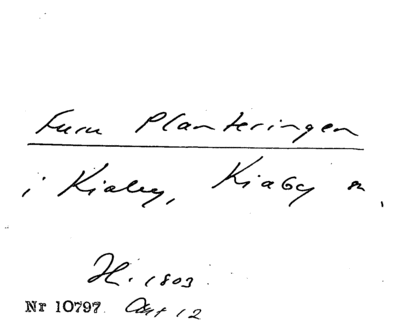 Furu Planteringen
i Kiaby, Kiaby sn.
H. 1803.
Nr 10797. Akt 12